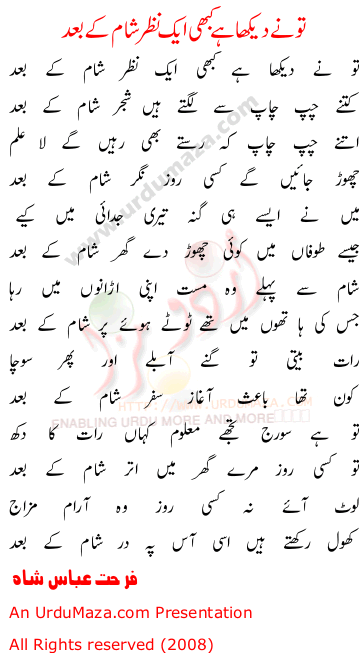 تو نے دیکھا ہے کبھی ایک نظر شام کے بعد
تو نے دیکھا ہے کبھی ایک نظر شام کے بعد
کتنے چپ چاپ سے لگتے ہیں شجر شام کے بعد
اتنے چپ چاپ کہ رستے بھی رہیں گے لا علم
چھوڑ جائیں گے کسی روز نگر شام کے بعد
میں نے ایسے ہی گنہ تیری جدائی میں کیے
جیسے طوفاں میں کوئی چھوڑ دے گھر شام کے بعد
شام سے پہلے وہ مست اپنی اڑانوں میں رہا
جس کی ہاتھوں میں تھے ٹوٹے ہوئے پر شام کے بعد
رات بیتی تو گنے آبلے اور پھر سوچا
کون تھا باعث آغاز سفر شام کے بعد
تو ہے سورج تجھے معلوم کہاں رات کا دکھ
تو کسی روز مرے گھر میں اتر شام کے بعد
لوٹ آئے نہ کسی روز وہ آرام مزاج
کھول رکھتے ہیں اسی آس پہ در شام کے بعد
فرحت عباس شاہ
An UrduMaza.com Presentation
All Rights reserved (2008)
www.urdumaza.com
اردو مزا
HTTP://WWW.URDUMAZA.COM
ENABLING URDU MORE AND MORE